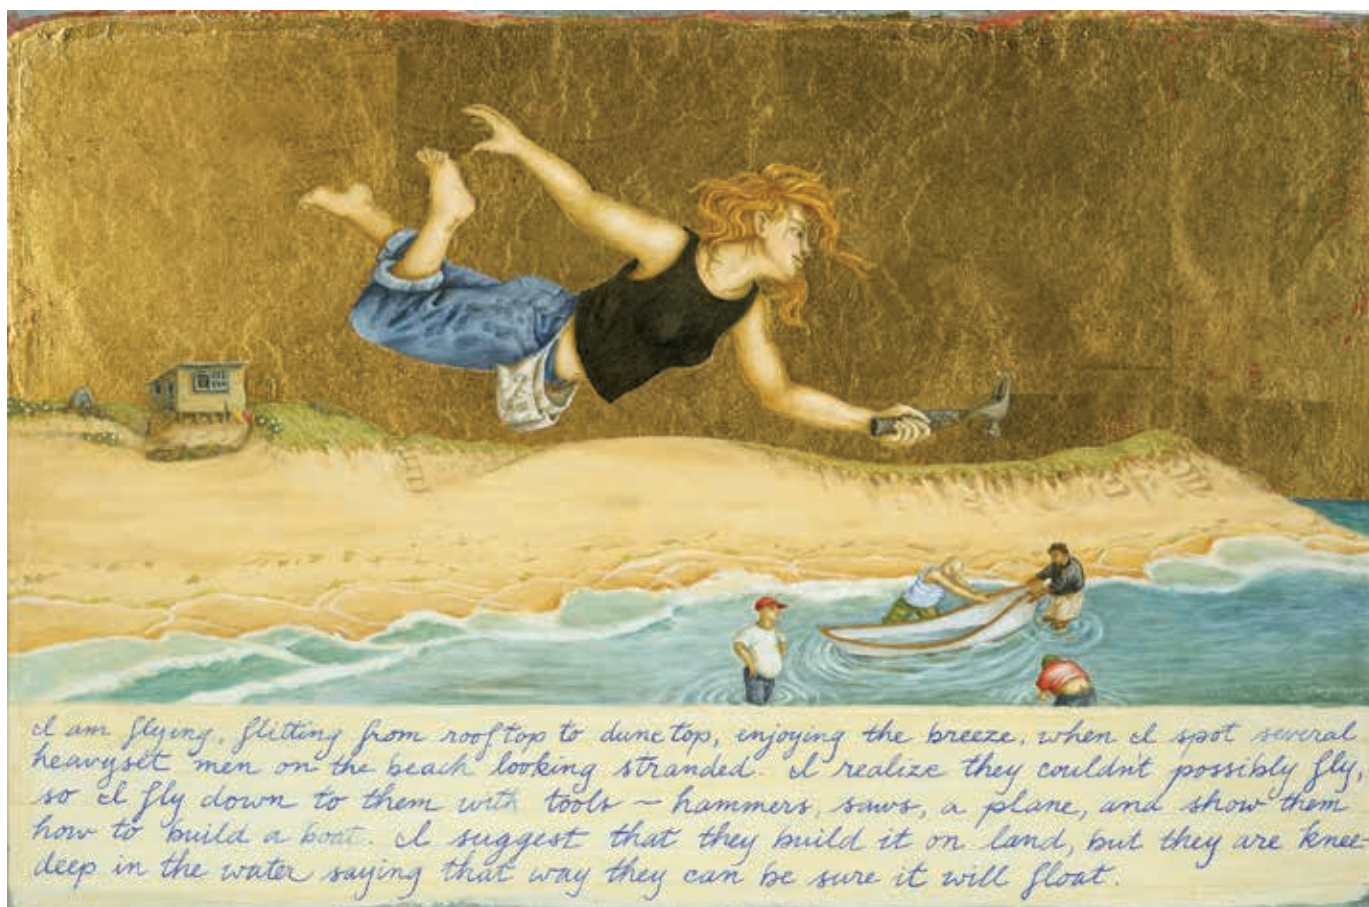 I am flying, flitting from rooftop to dune top, enjoying the breeze, when I spot several
heavyset men on the beach looking stranded. I realize they couldn't possibly fly,
so I fly down to them with tools ~ hammers, saws, a plane, and show them
how to build a boat. I suggest that they build it on land, but they are knee-
deep in the water saying that way they can be sure it will float.